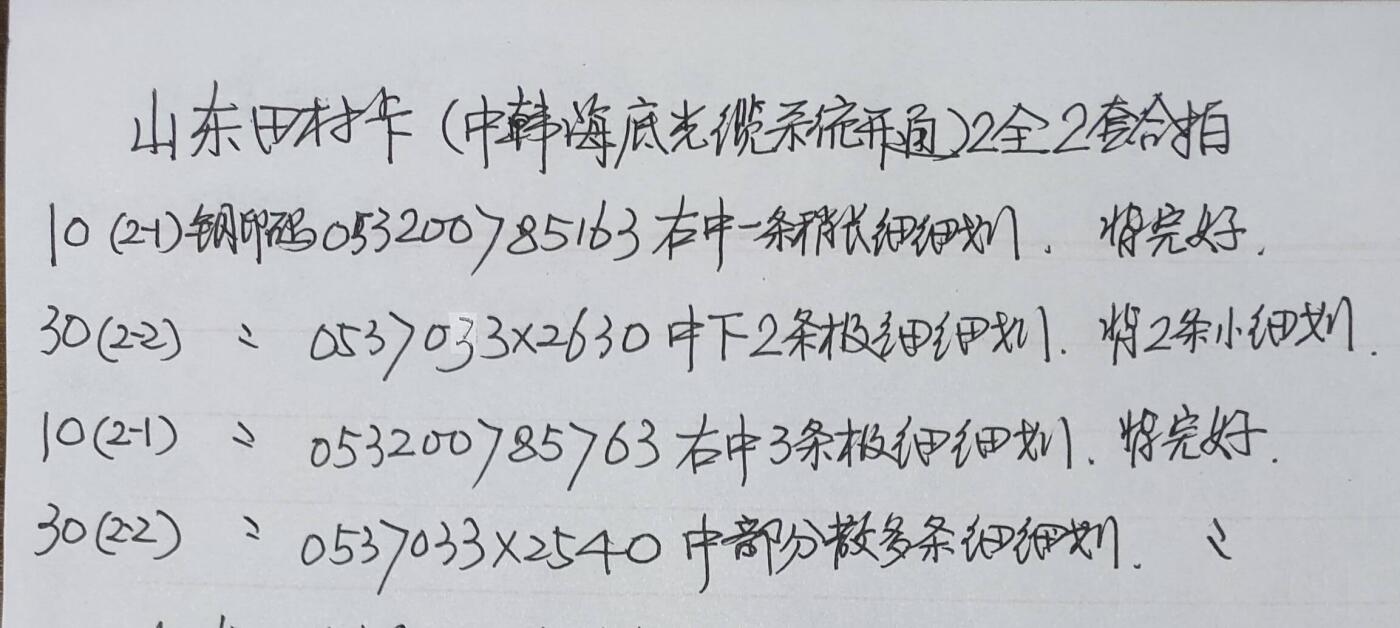 山东田村卡(中韩海底光缆系统开通)2全2套合拍
10(2-1)钢印码053200785163右中一条稍长细细划. 背完好.
30(2-2) 〃 0537033X2630中下2条极细细划. 背2条小细划.
10(2-1) 〃 053200785763右中3条极细细划. 背完好.
30(2-2) 〃 0537033X2540中部分散多条细细划. 〃